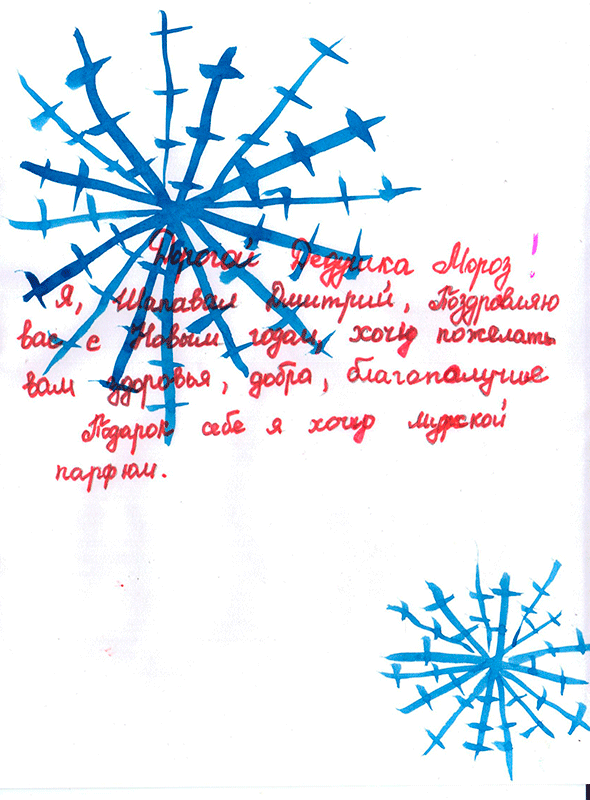 Дорогой Дедушка Мороз!
Я, Шапавал Дмитрий, Поздровляю
вас с Новым годам, хочу пожелать
вам здоровья, добра, благополучие
Подарок себе я хочу мужской
парфюм.